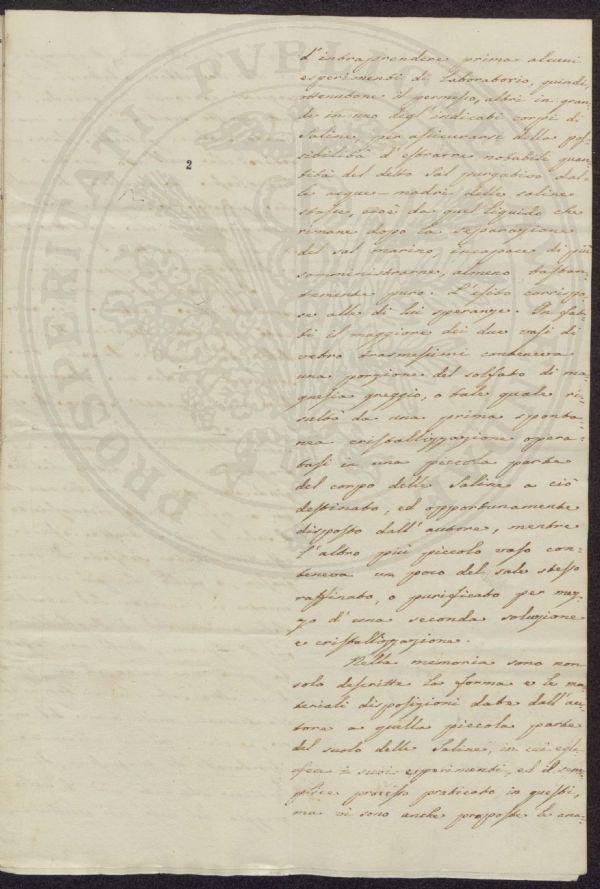 PROSPERITATI PVBLI
2
d'intraprendere prima alcuni
esperimenti di Laboratorio, quindi,
ottenutone il permesso, altri in gran-
de in uno degl'indicati corpi di
Saline, per assicurarsi della pos-
sibilità d'estrarre notabile quan-
tità del detto sal purgativo dal-
le acque-madri delle saline
stesse, cioè da quel liquido che
rimane dopo la separazione
del sal marino, incapace di più
somministrarne, almeno bastan-
temente puro. L'esito corrispo-
se alle di lui speranze. In fat-
ti il maggiore dei due vasi di
vetro trasmessimi conteneva
una porzione del solfato di ma-
gnesia greggio, o tale quale ri-
sultò da una prima sponta-
nea cristallizzazione opera-
tasi in una piccola parte
del corpo delle Saline a ciò
destinato, ed opportunamente
disposto dall'autore, mentre
l'altro più piccolo vaso con-
teneva un poco del sale stesso
raffinato, o purificato per mez-
zo d'una seconda soluzione
e cristallizzazione.
Nella memoria sono non
solo descritte la forma e le ma-
teriali disposizioni date dall'au-
tore a quella piccola parte
del suolo delle Saline, in cui egli
fece i suoi esperimenti, ed il sem-
plice processo praticato in questi,
ma vi sono anche proposte le ana-